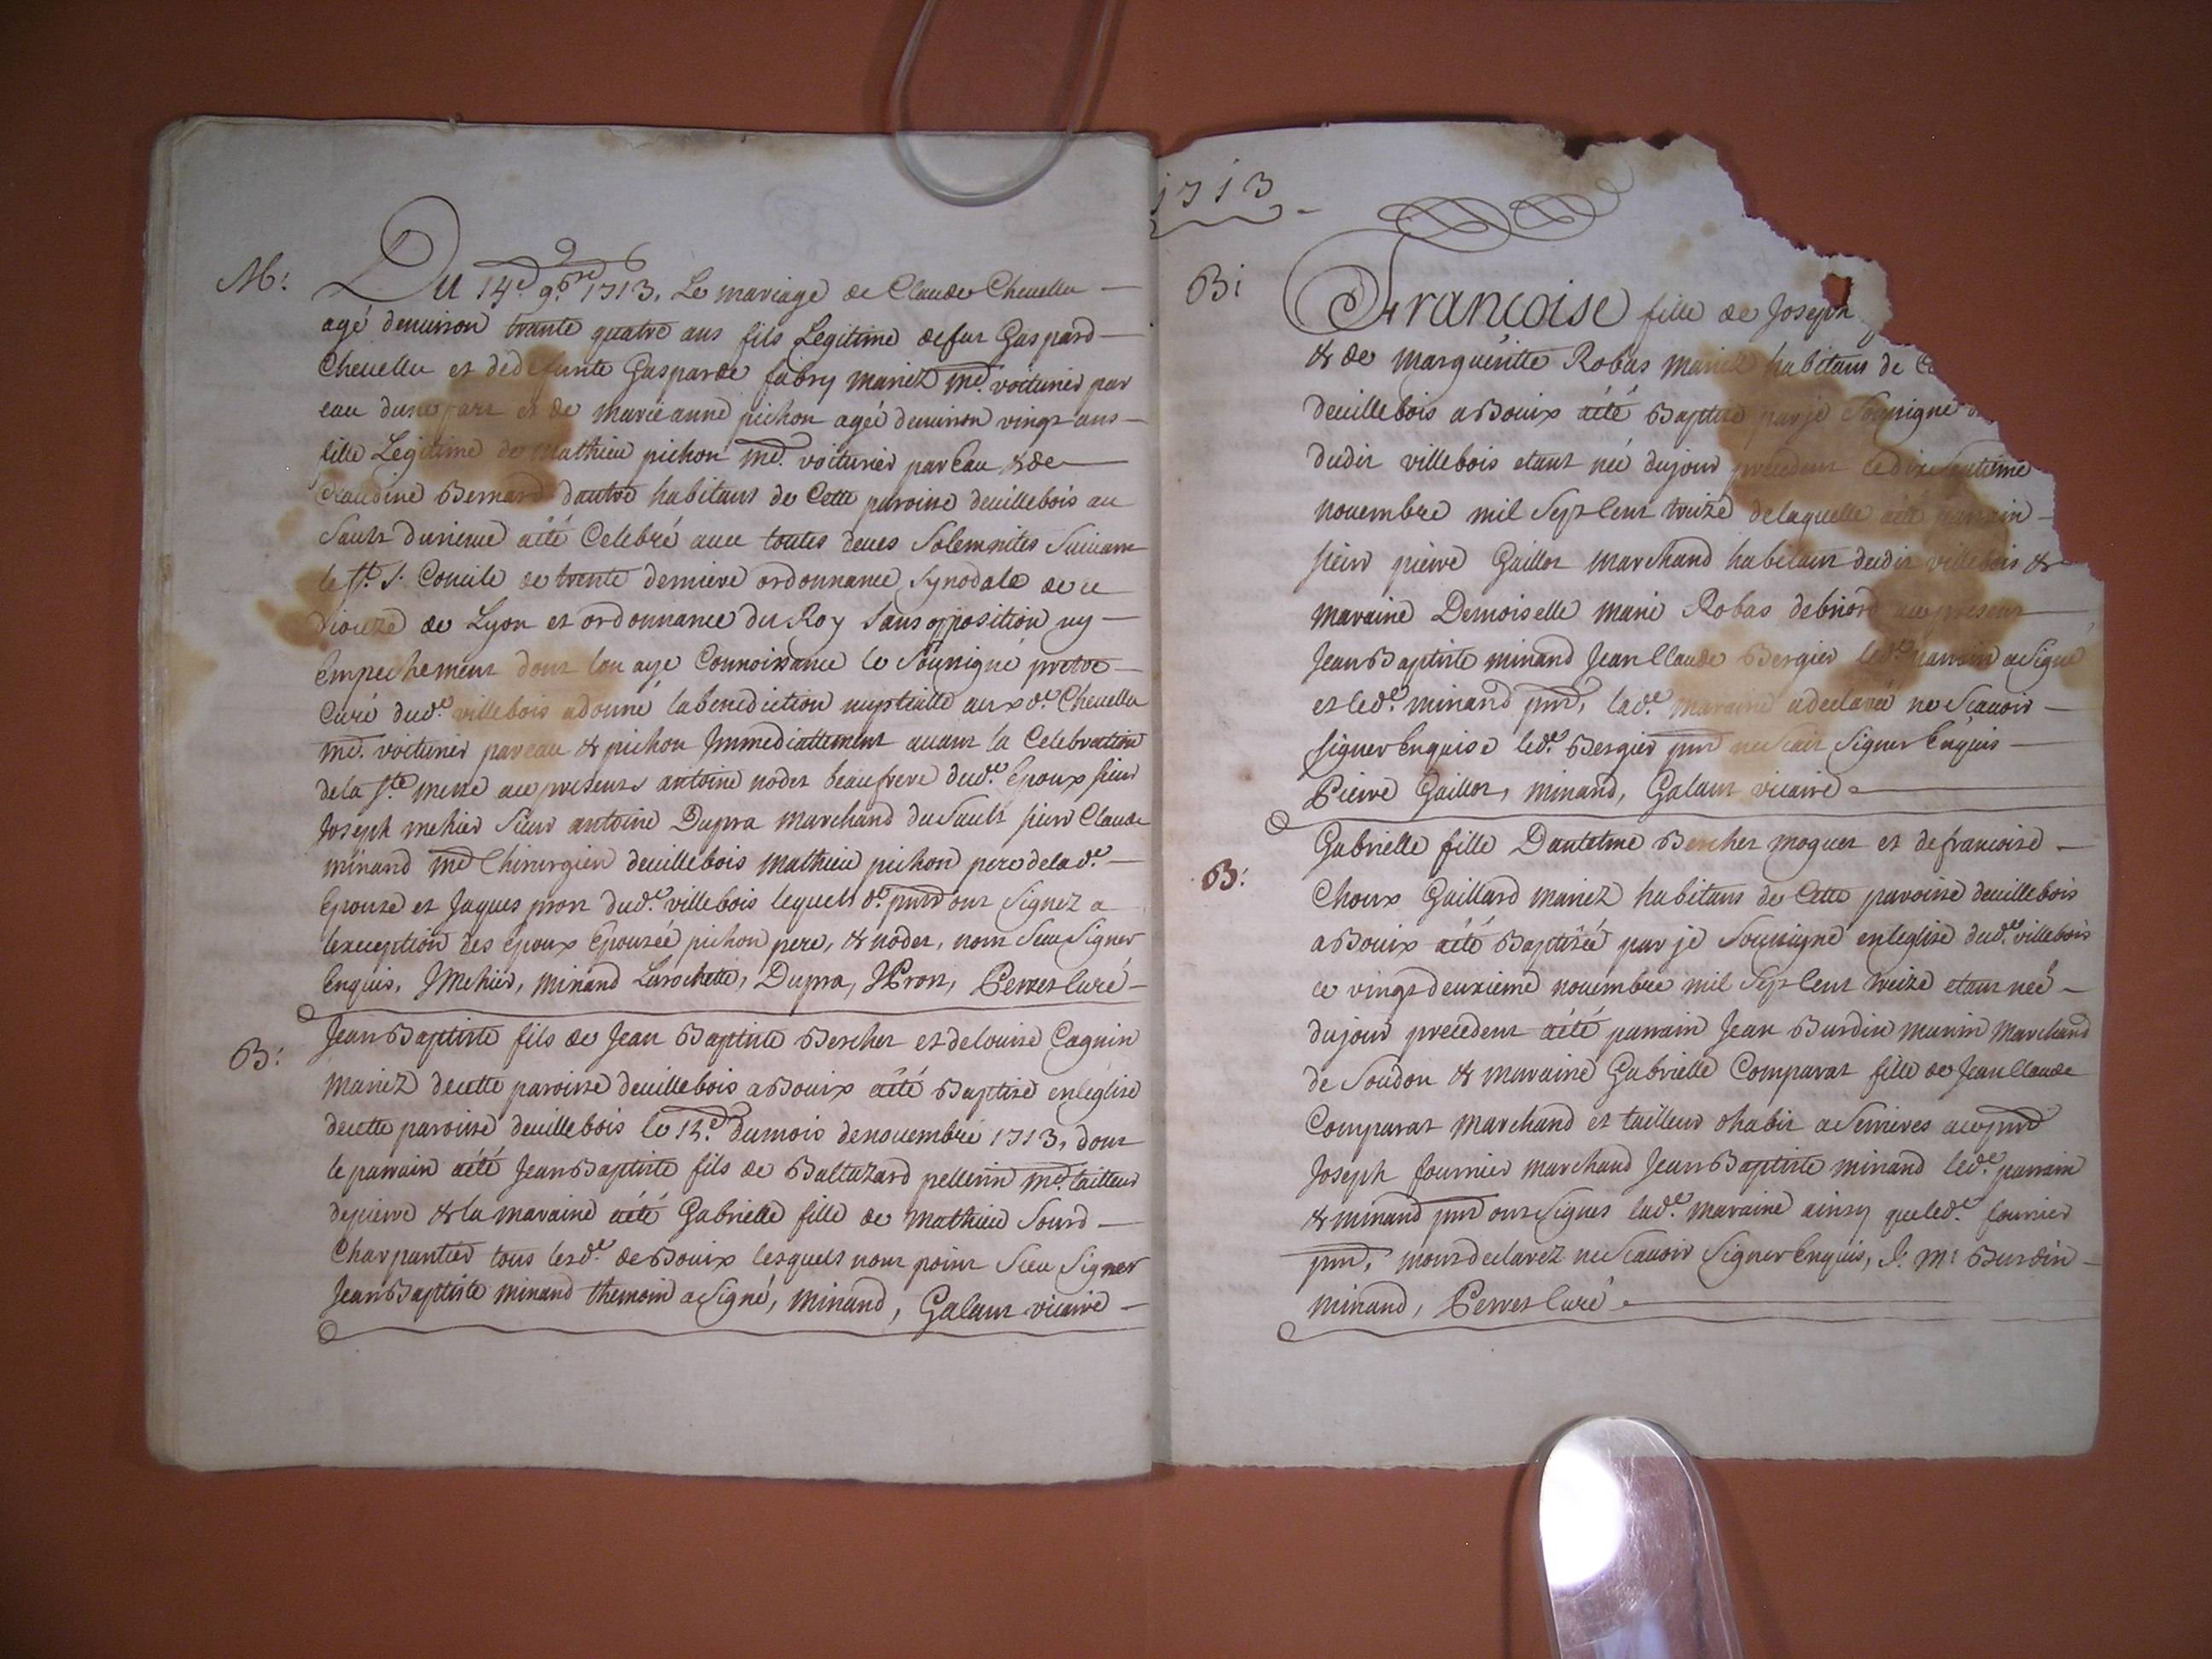 M:
Du 14e 9bre 1713. Le mariage de Claude Cheuellu
agé denuiron trante quatre ans fils Legitime defur Gaspard
Cheuellu et dedefunte Gasparde fabry mariez md. voiturier par
eau dune part et de marie anne pichon agée denuiron vingt ans
fille Legitime de mathieu pichon md. voiturier par Eau & de
Claudine Bernard dautre habitans de Cette paroisse deuillebois au
Sault aété Celebré auec toutes deues Solemnites Suiuant
le St. Concile de trente derniere ordonnance Synodale de ce
diocize de Lyon et ordonnance du Roy Sans opposition ny
Empechement dont lon aye Connoissance le Sousigné pretre
Curé dud.e villebois adonné la benediction nuptialle aux d.e Cheuellu
md. voiturier par eau & pichon Immediattement auant la Celebration
dela Ste messe aux presents antoine nodet beaufrere dud.e Epoux sieur
Joseph mehier Sieur antoine Dupra marchand du Sault sieur Claude
minand md Chirurgien deuillebois mathieu pichon pere delad.e
Epouse et Jaques pron dud.e villebois lequels d.e pnts ont Signez a
lexception des Epoux Epousée pichon pere, & nodet, nont Sceu Signer
Enquis, JMehier, minand Larochette, Dupra, JPron, Perret Curé
B:
Jean Baptiste fils de Jean Baptiste Bercher et delouise Cagnin
Mariez decette paroisse deuillebois a Bouix aété Baptisé enleglise
decette paroisse deuillebois le 15.e dumois denouembre 1713, dont
le parrain aété Jean Baptiste fils de Baltazard pellerin md. tailleur
depierre & la maraine aété Gabrielle fille de Mathieu Sourd
Charpantier tous lesd.e de Bouix lesquels nont point Sceu Signer
Jean Baptiste minand themoin a Signé, minand, Galant vicaire
1713
B:
Francoise fille de Joseph
& de margueritte Robas mariez habitans de
deuillebois a Bouix aété Baptisé par je Sousigné
dudit villebois etant née dujour precedent ledix Septieme
nouembre mil Sept Cent treize delaquelle aété parrain
sieur pierre Gaillot marchand habitant dudit villebois &
maraine Demoiselle marie Robas debriord aux presens
Jean Baptiste minand Jean Claude Bergier led.e parrain a Signé
et led.e minand pnt, lad.e maraine adeclaré ne Scauoir
signer Enquise led.e Bergier pnt ne Scait Signer Enquis
Pierre Gaillot, minand, Galant vicaire
B:
Gabrielle fille Dantelme Bercher moguet et defrancoise
Choux Gaillard mariez habitans de Cette paroisse deuillebois
a Bouix aété Baptisée par je Sousigné enleglise dud.e villebois
ce vingt deuxieme nouembre mil Sept Cent treize etant née
dujour precedent aété parrain Jean Burdin marin Marchand
de Soudon & maraine Gabrielle Comparat fille de Jean Claude
Comparat marchand et tailleur dhabit a Serrieres aux pnts
Joseph fournier marchand Jean Baptiste minand led.e parrain
& minand pnt ont Signes lad.e maraine ainsy queled.e fournier
pnt, mont declarez ne Scauoir Signer Enquis, J. M: Burdin
minand, Perret Curé